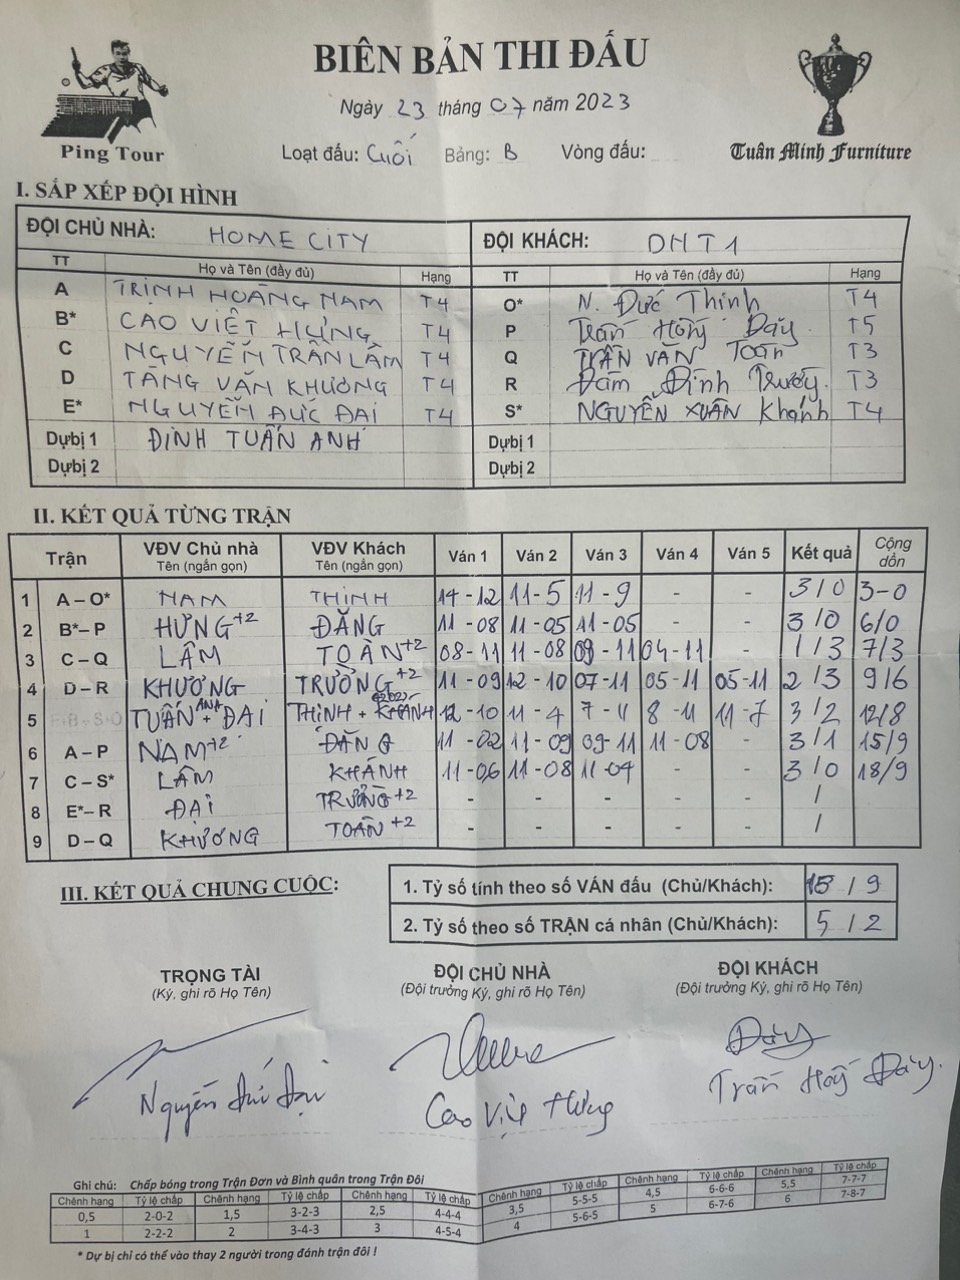 BIÊN BẢN THI ĐẤU
Ngày 23 tháng 07 năm 2023
Ping Tour
Loạt đấu: Cuối Bảng: B Vòng đấu:
Tuấn Minh Furniture
I. SẮP XẾP ĐỘI HÌNH
ĐỘI CHỦ NHÀ: HOME CITY ĐỘI KHÁCH: DHT1
TT Họ và Tên (đầy đủ) Hạng TT Họ và Tên (đầy đủ) Hạng
A TRỊNH HOÀNG NAM T4 O* N. Đức Thịnh T4
B* CAO VIỆT HƯNG T4 P Trần Hoàng Đăng T5
C NGUYỄN TRẦN LÂM T4 Q TRẦN VĂN Toàn T3
D TĂNG VĂN KHƯƠNG T4 R Đàm Đình Trường T3
E* NGUYỄN ĐỨC ĐẠI T4 S* NGUYỄN XUÂN Khánh T4
Dự bị 1 ĐINH TUẤN ANH Dự bị 1
Dự bị 2 Dự bị 2
II. KẾT QUẢ TỪNG TRẬN
Trận VĐV Chủ nhà Tên (ngắn gọn) VĐV Khách Tên (ngắn gọn) Ván 1 Ván 2 Ván 3 Ván 4 Ván 5 Kết quả Cộng dồn
1 A – O* NAM THỊNH 14-12 11-5 11-9 - - 3/0 3-0
2 B*– P HƯNG+2 ĐĂNG 11-08 11-05 11-05 - - 3/0 6/0
3 C – Q LÂM TOÀN+2 08-11 11-08 09-11 04-11 - 1/3 7/3
4 D – R KHƯƠNG TRƯỜNG+2 11-09 12-10 07-11 05-11 05-11 2/3 9/6
5 TUẤN ANH + ĐẠI THỊNH + KHÁNH 12-10 11-4 7-11 8-11 11-7 3/2 12/8
6 A – P NAM+2 ĐĂNG 11-02 11-09 09-11 11-08 - 3/1 15/9
7 C – S* LÂM KHÁNH 11-06 11-08 11-04 - - 3/0 18/9
8 E*– R ĐẠI TRƯỜNG+2 - - - - - /
9 D – Q KHƯƠNG TOÀN+2 - - - - - /
III. KẾT QUẢ CHUNG CUỘC:
1. Tỷ số tính theo số VÁN đấu (Chủ/Khách): 18 / 9
2. Tỷ số theo số TRẬN cá nhân (Chủ/Khách): 5 / 2
TRỌNG TÀI ĐỘI CHỦ NHÀ ĐỘI KHÁCH
(Ký, ghi rõ Họ Tên) (Đội trưởng Ký, ghi rõ Họ Tên) (Đội trưởng Ký, ghi rõ Họ Tên)
Nguyễn Đức Đại Cao Việt Hưng Trần Hoàng Đăng
Ghi chú: Chấp bóng trong Trận Đơn và Bình quân trong Trận Đôi
Chênh hạng Tỷ lệ chấp Chênh hạng Tỷ lệ chấp Chênh hạng Tỷ lệ chấp Chênh hạng Tỷ lệ chấp Chênh hạng Tỷ lệ chấp Chênh hạng Tỷ lệ chấp
0,5 2-0-2 1,5 3-2-3 2,5 4-4-4 3,5 5-5-5 4,5 6-6-6 5,5 7-7-7
1 2-2-2 2 3-4-3 3 4-5-4 4 5-6-5 5 6-7-6 6 7-8-7
* Dự bị chỉ có thể vào thay 2 người trong đánh trận đôi !